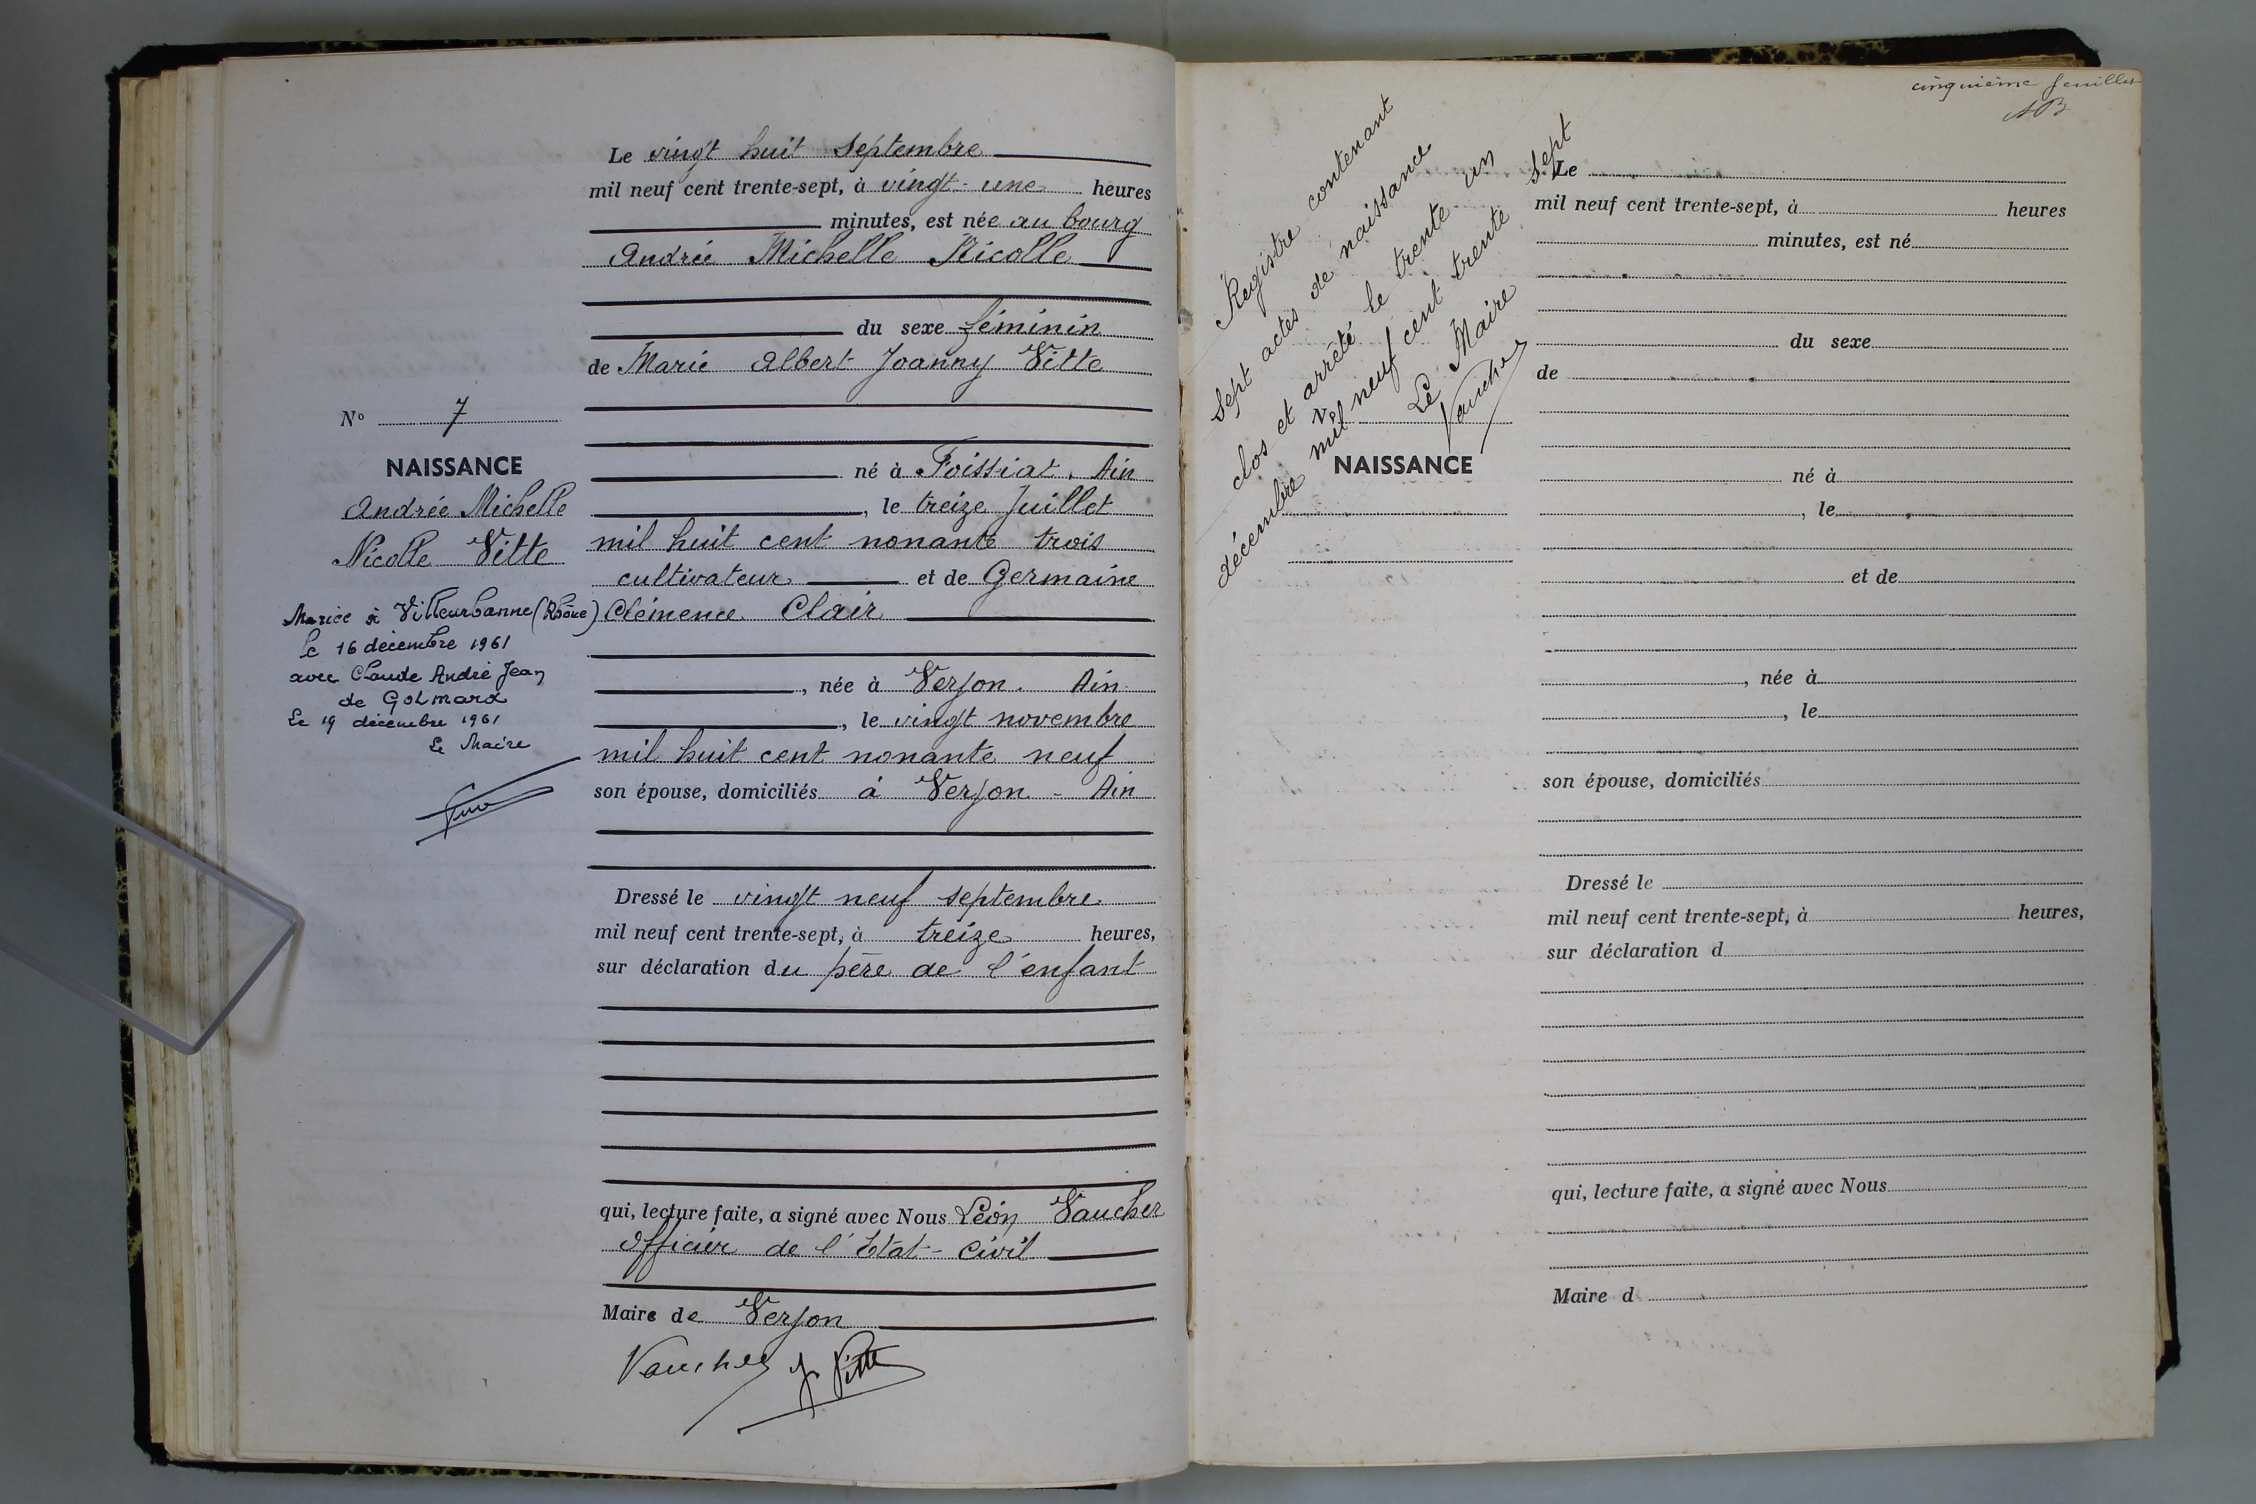 Le vingt huit septembre
mil neuf cent trente-sept, à vingt-une heures
minutes, est née au bourg
Andrée Michelle Nicolle
du sexe féminin
de Marie Albert Joanny Vitte
né à Foissiat. Ain
, le treize Juillet
mil huit cent nonante trois
cultivateur et de Germaine
Clémence Clair
, née à Verjon. Ain
, le vingt novembre
mil huit cent nonante neuf
son épouse, domiciliés à Verjon - Ain
Dressé le vingt neuf septembre
mil neuf cent trente-sept, à treize heures,
sur déclaration du père de l'enfant
qui, lecture faite, a signé avec Nous Léon Vaucher
Officier de l'Etat-Civil
Maire de Verjon
Vaucher J. Vitte
N° 7
NAISSANCE
Andrée Michelle
Nicolle Vitte
Mariée à Villeurbanne (Rhône)
le 16 décembre 1961
avec Claude André Jean
de GOLMARD
Le 19 décembre 1961
Le Maire
cinquième feuillet
AB
Registre contenant
sept actes de naissance
clos et arrêté le trente un
décembre mil neuf cent trente sept
Le Maire
Vaucher
N°
NAISSANCE
Le
mil neuf cent trente-sept, à heures
minutes, est né
du sexe
de
né à
, le
et de
, née à
, le
son épouse, domiciliés
Dressé le
mil neuf cent trente-sept, à heures,
sur déclaration d
qui, lecture faite, a signé avec Nous
Maire d